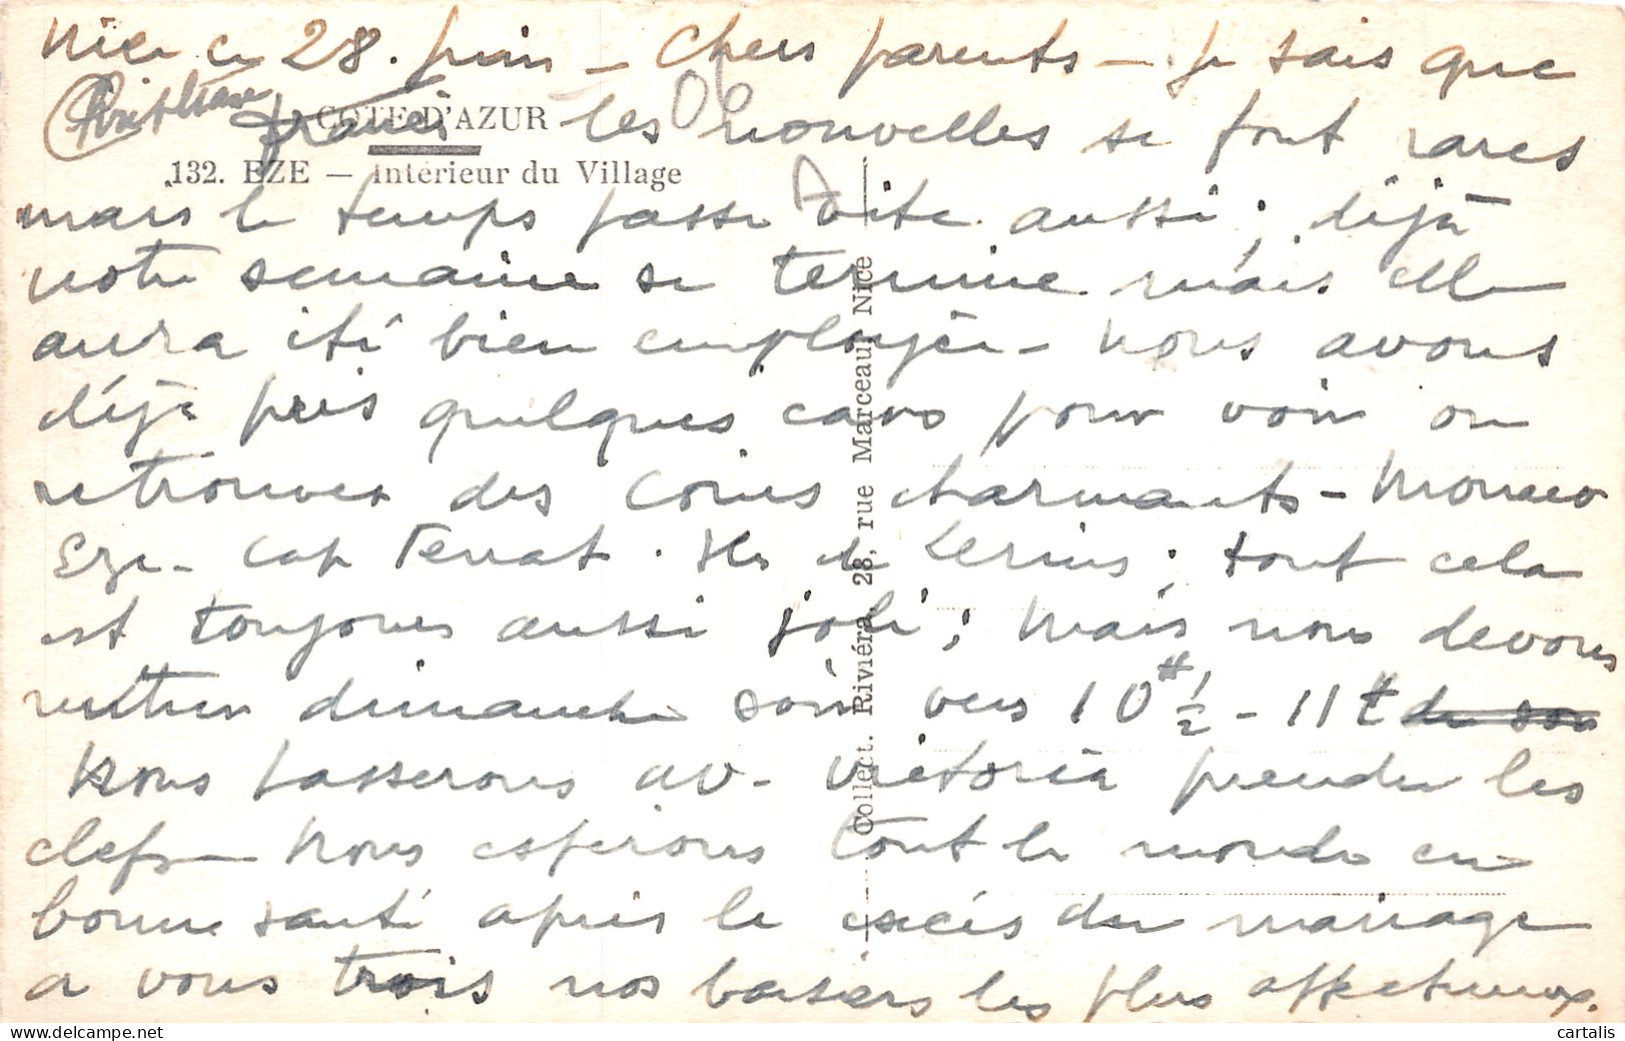 Nice ce 28. juin - Chers parents - Je sais que
COTE D'AZUR les nouvelles se font rares
132. EZE — Intérieur du Village
mais le temps passe vite aussi; déjà
notre semaine se termine mais elle
aura été bien employée - Nous avons
déjà pris quelques cars pour voir ou
retrouver des coins charmants - Monaco
Eze - Cap Ferrat. Iles de Lerins; tout cela
est toujours aussi joli; Mais nous devons
rentrer dimanche soir vers 10H 1/2 - 11H
Nous passerons av. Victoria prendre les
clefs - Nous espérons tout le monde en
bonne santé après le excés du mariage
a vous trois nos baisers les plus affectueux.
Collect. Riviéra, 28, rue Marceau, Nice
cartalis